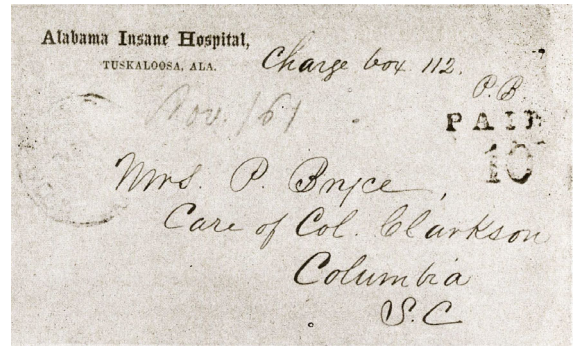 Alabama Insane Hospital,
TUSKALOOSA, ALA.
Charge box 112.
P. B
PAID
10
Nov. /61
Mrs. P. Bryce,
Care of Col. Clarkson
Columbia
S.C